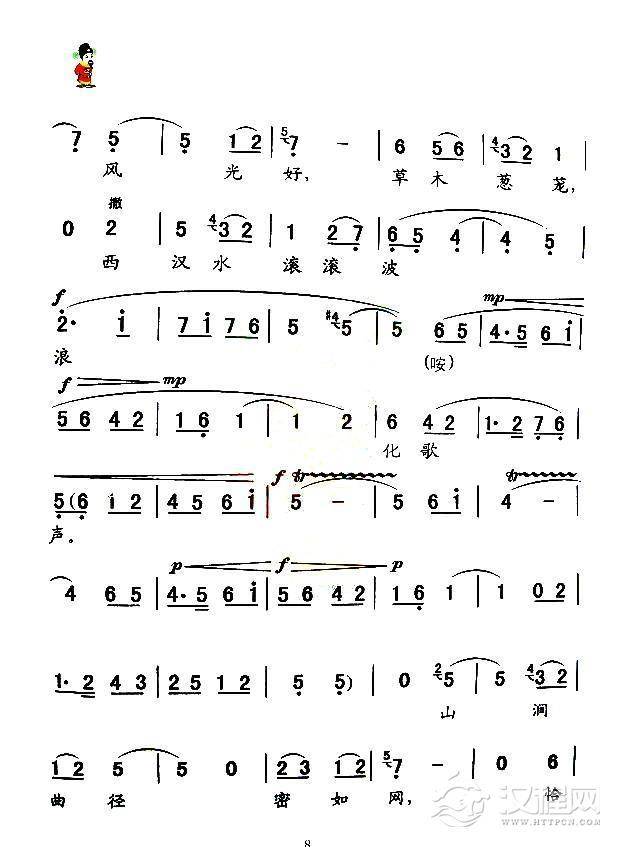 7 5 | 5 1 2 | 5 7 | - | 6 5 6 | 4 3 2 1 |
风 光 好, 草 木 葱 茏,
撒
0 2 | 5 4 3 2 | 1 2 7 | 6 5 4 | 4 5 |
西 汉 水 滚 滚 波
f mp
2· i | 7 i 7 6 | 5 #4 5 | 5 6 5 | 4·5 6 i |
浪 (咹)
f mp
5 6 4 2 | 1 6 1 | 1 2 | 6 4 2 | 1·2 7 6 |
化 歌
f tr tr
5 (6 i 2 | 4 5 6 i | 5 - | 5 6 i | 4 - |
声。
p f p
4 6 5 | 4·5 6 i | 5 6 4 2 | 1 6 1 | 1 0 2 |
1·2 4 3 | 2 5 1 2 | 5 5) | 0 2 5 | 5 4 3 2 |
山 涧
1 2 5 | 5 0 | 2 3 1 2 | 5 7 | - | 0 6 |
曲 径 密 如 网, 恰
汉程网
WWW.HTTPCN.COM
8